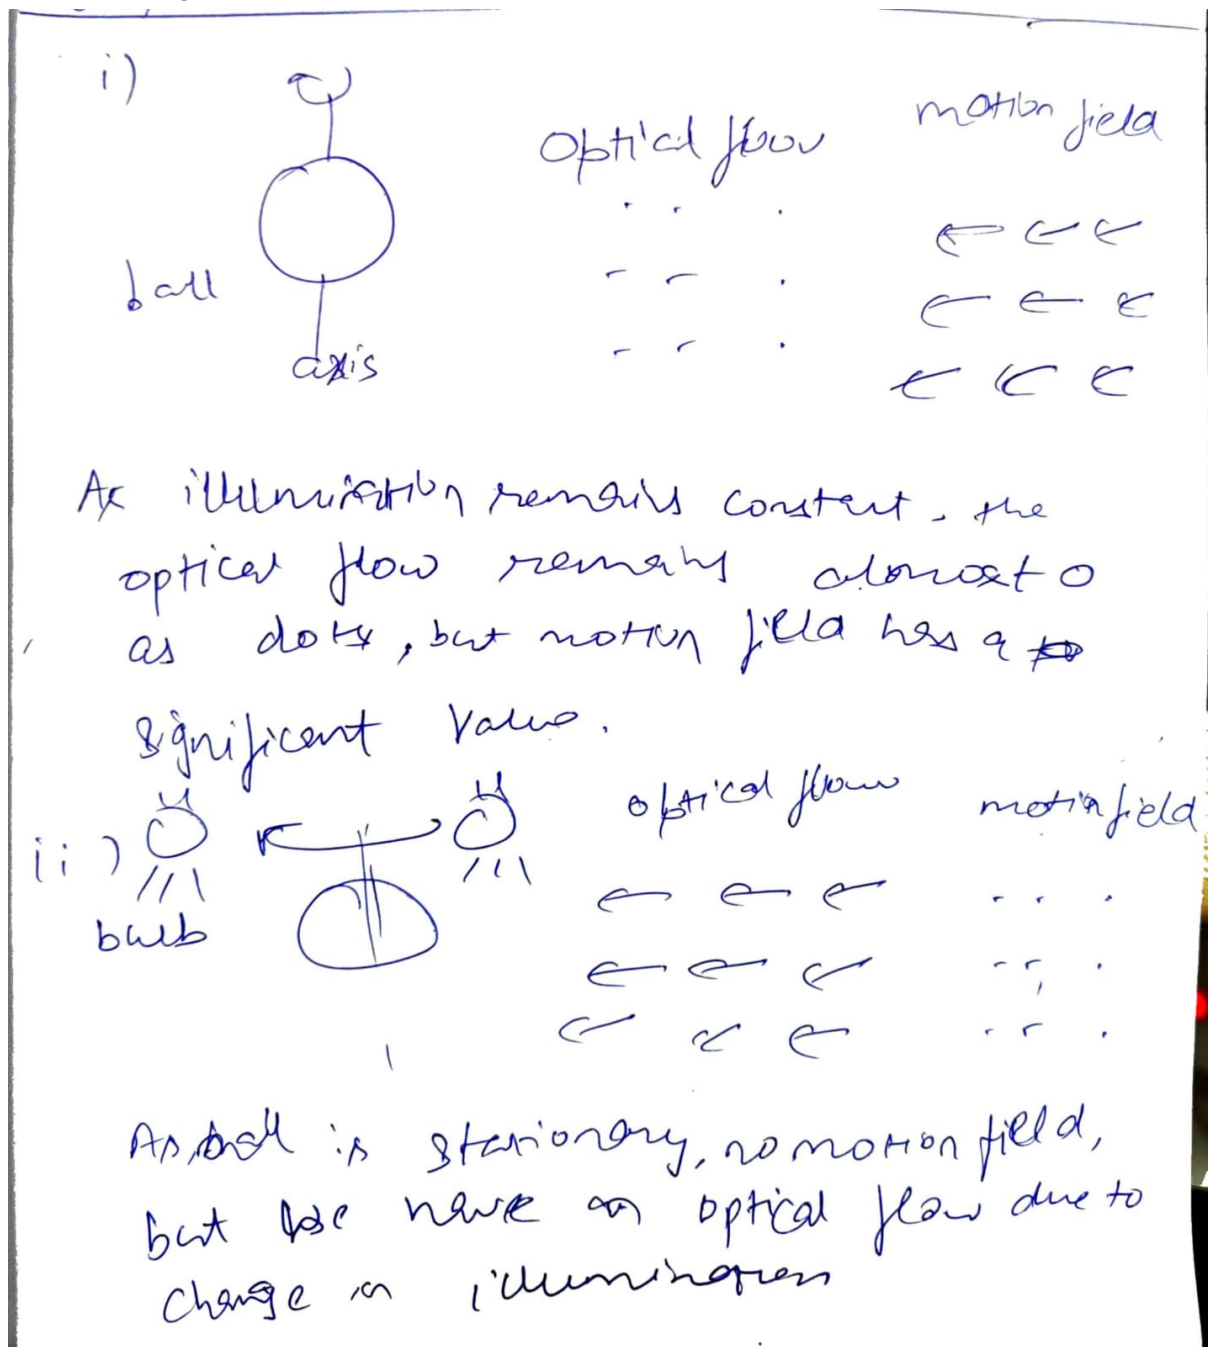 i)
Optical flow
motion field
ball
axis
As illumination remains constant, the
optical flow remains almost 0
as dots, but motion field has a
significant value.
ii)
optical flow
motion field
bulb
As ball is stationary, no motion field,
but we have an optical flow due to
change in illumination